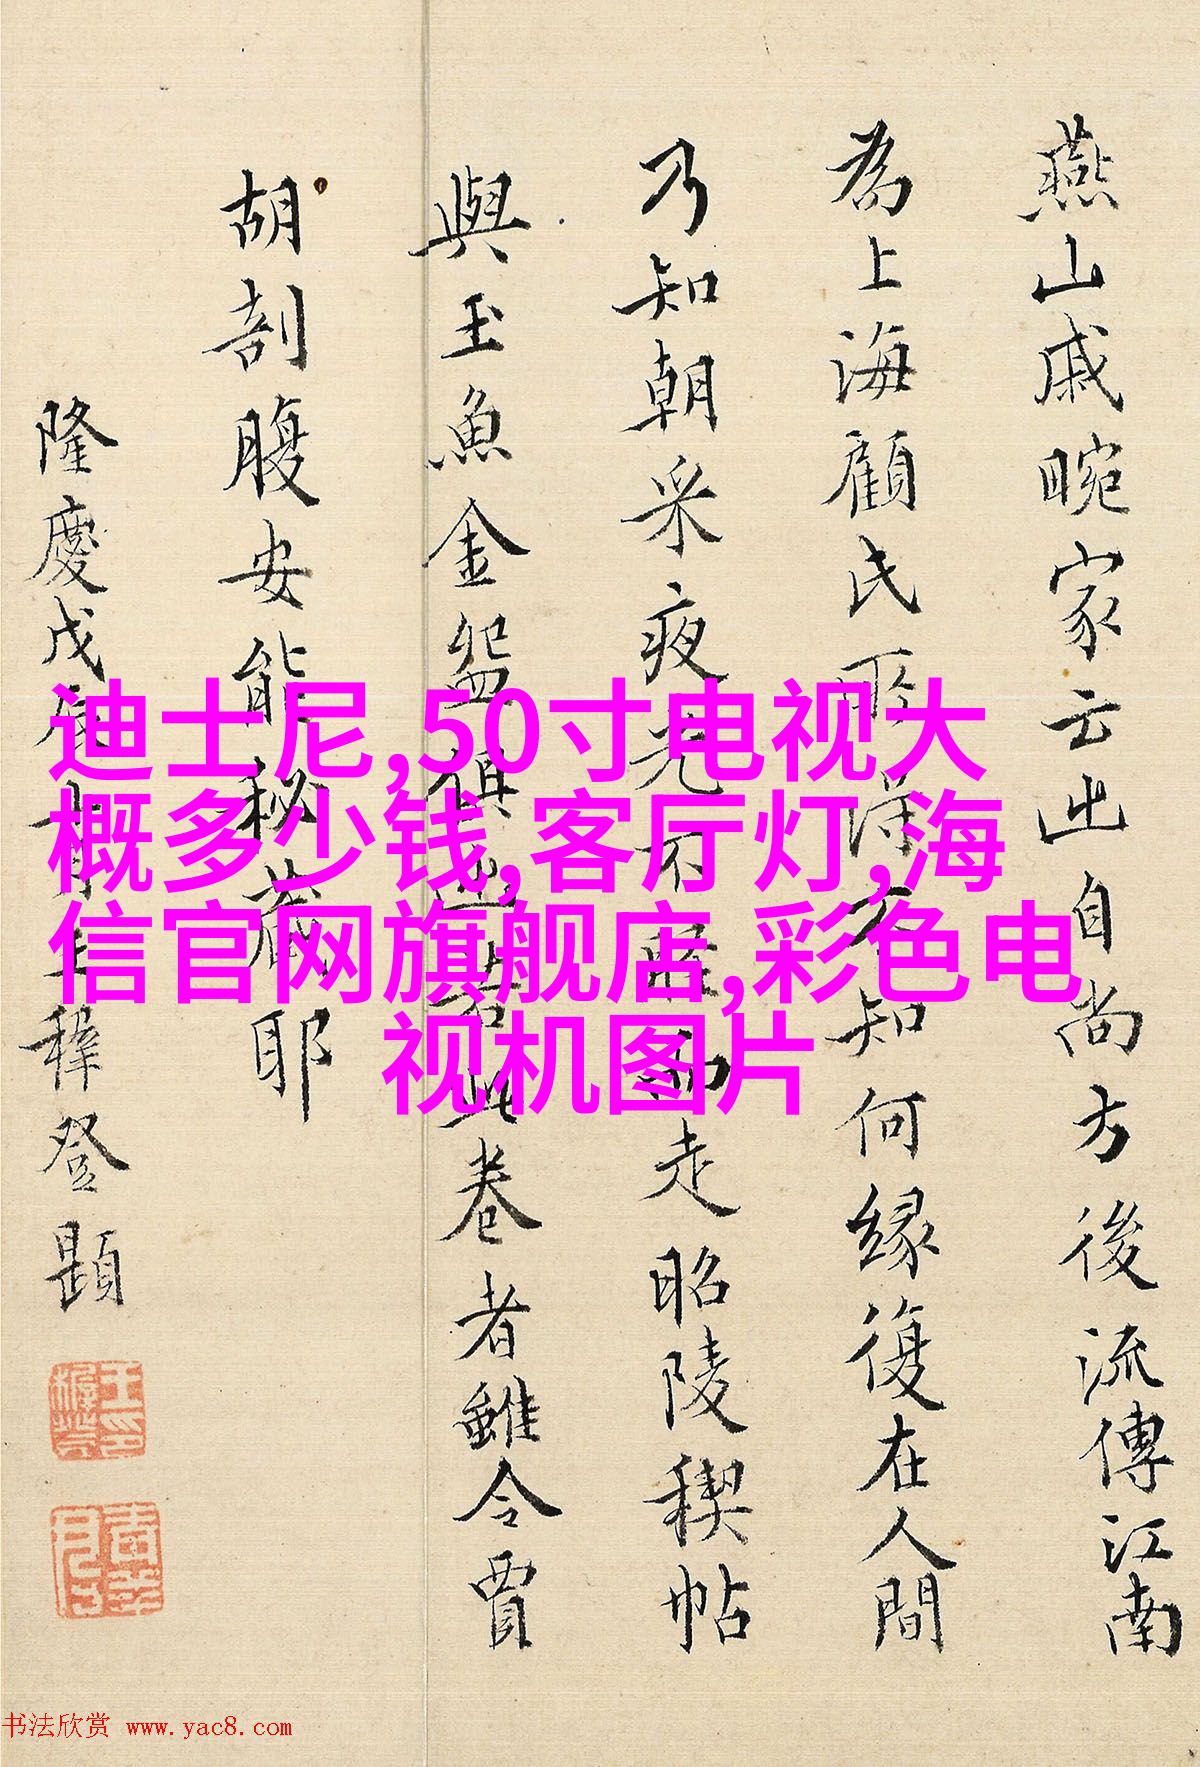 燕山戚畹家云出自尚方後流傳江南
為上海顧氏所得不知何緣復在人間
乃知朝采夜光不脛而走昭陵稧帖
與玉魚金盌俱出若此卷者雖令賈
胡剖腹安能秘藏耶
隆慶戊辰七月王穉登題
迪士尼,50寸电视大
概多少钱,客厅灯,海
信官网旗舰店,彩色电
视机图片
书法欣赏 www.yac8.com